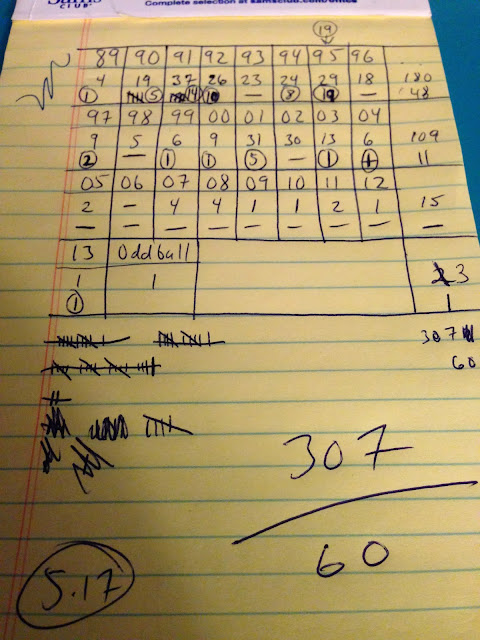 CLUB
Complete selection at samsclub.com/office
19
89 90 91 92 93 94 95 96
4 19 37 26 23 24 29 18 180
1 5 14 10 — 8 19 — 48
97 98 99 00 01 02 03 04
9 5 6 9 31 30 13 6 109
2 — 1 1 5 — 1 1 11
05 06 07 08 09 10 11 12
2 — 4 4 1 1 2 1 15
— — — — — — — — —
13 Oddball
1 1 3
1 1
307
60
307
60
5.17